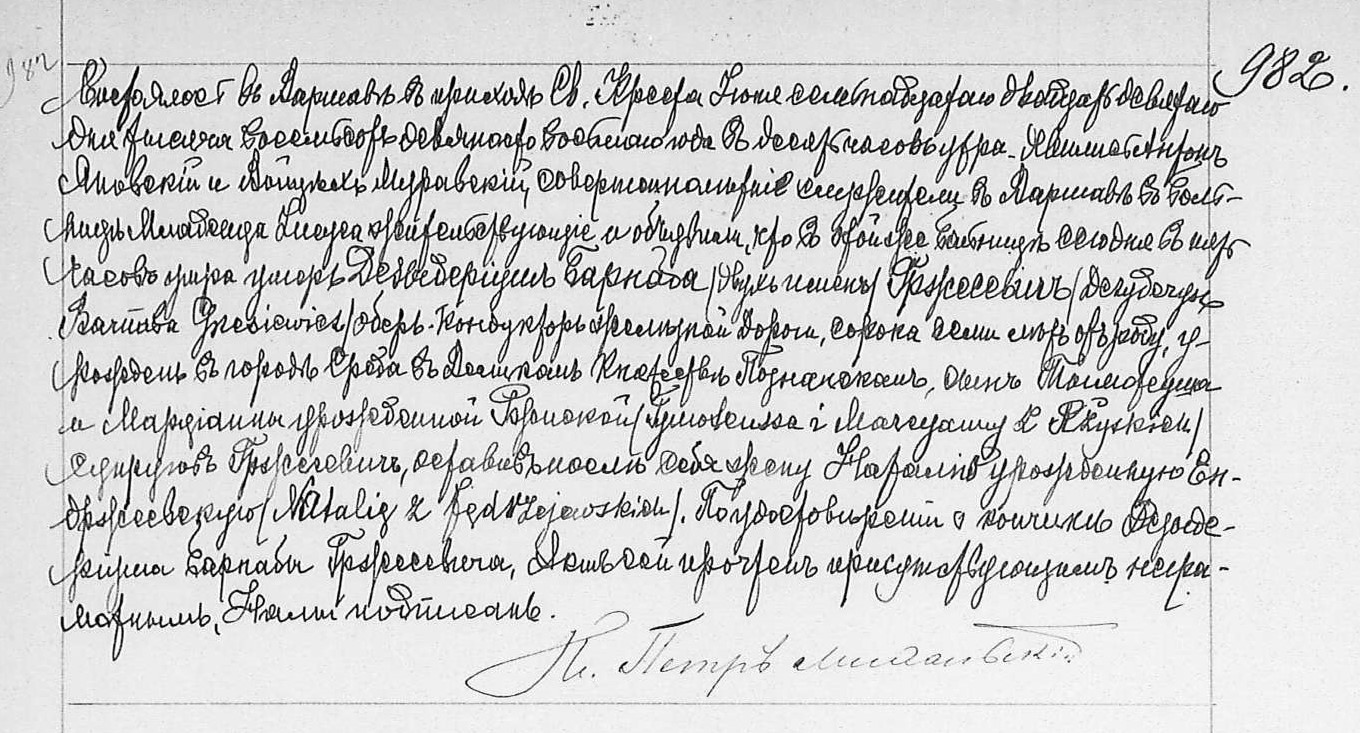 982
982.
Состоялось въ Варшавѣ въ приходѣ Св. Креста Іюня семнадцатаго двадцать девятаго
дня тысяча восемьсотъ девяносто восьмаго года въ десять часовъ утра. Явились Антонъ
Яновскій и Войцехъ Муравскій, совершеннолѣтніе служители въ Варшавѣ въ боль-
ницѣ Младенца Іисуса жительствующіе и объявили, что въ той же больницѣ сегодня въ пять
часовъ утра умеръ Дезидеріушъ Барнаба /двухъ именъ/ Гржесевичъ /Dezyderyusz
Barnaba Grzesiewicz/ оберъ-кондукторъ желѣзной дороги, сорока семи лѣтъ отъ роду, у-
рожденъ въ городѣ Срода въ Великомъ Княжествѣ Познанскомъ, сынъ Тымотеуша
и Марціанны урожденной Ржиской /Tymoteusza i Marcyanny z Rzyskich/
супруговъ Гржесевичъ, оставивъ послѣ себя жену Наталію урожденную Ен-
држеевскую /Natalię z Jędrzejewskich/. По удостовѣреніи о кончинѣ Дезыде-
ріуша Барнабы Гржесевича, Актъ сей прочтенъ присутствующимъ негра-
мотнымъ, Нами подписанъ.
Кс. Петръ